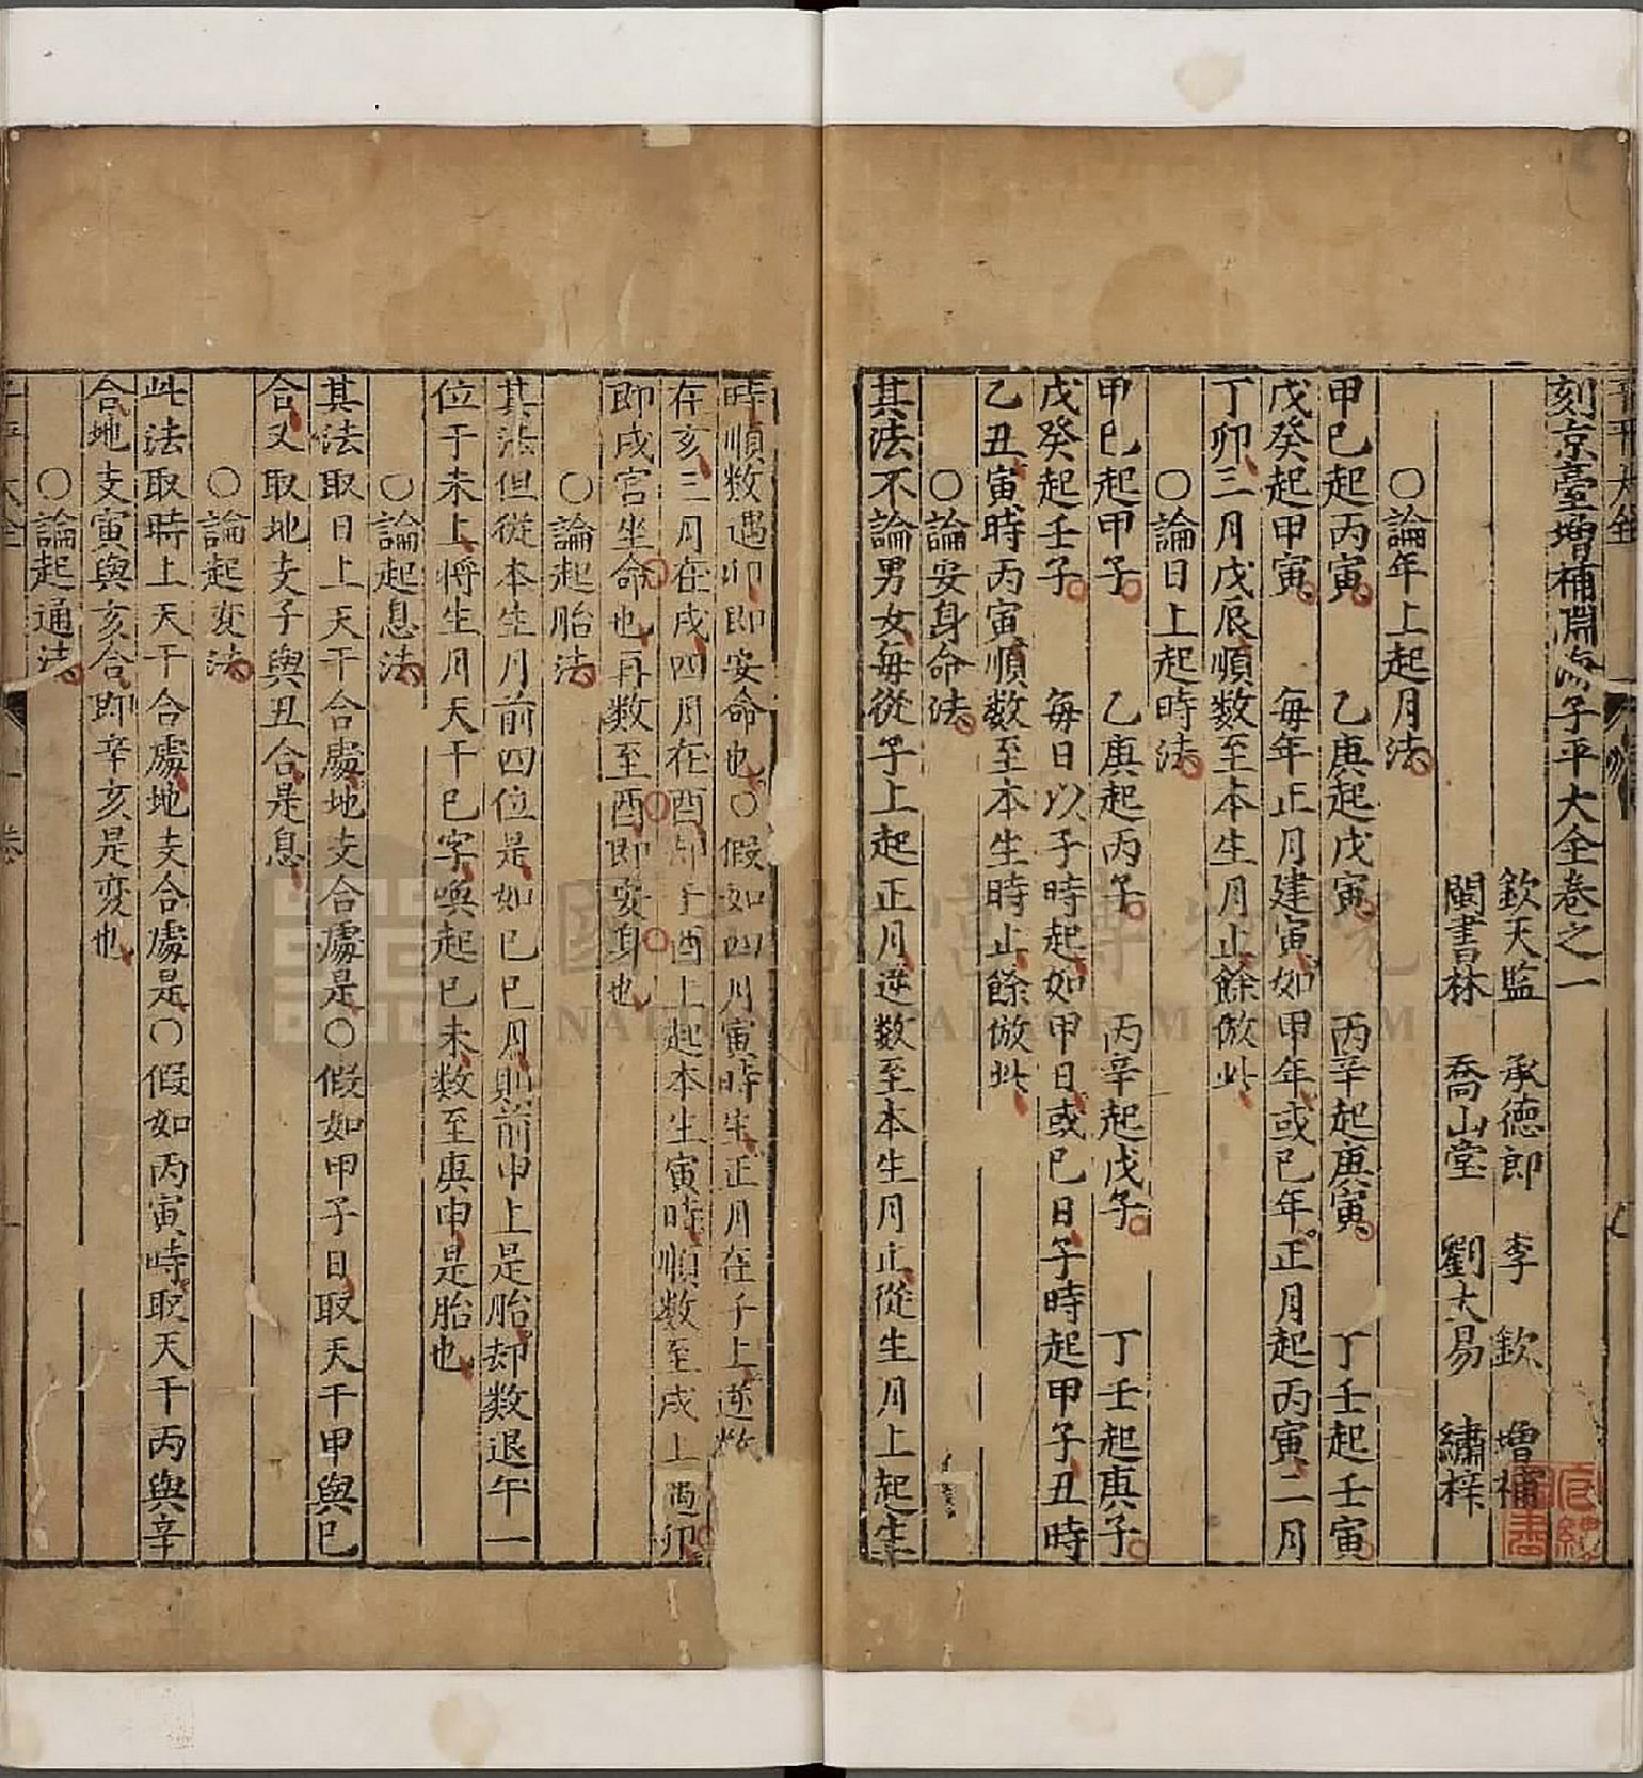 刻京臺増補淵海子平大全卷之一
欽天監 承德郎 李 欽 増補
閩書林 喬山堂 劉大易 繡梓
〇論年上起月法
甲巳起丙寅 乙庚起戊寅 丙辛起庚寅 丁壬起壬寅
戊癸起甲寅 每年正月建寅如甲年或巳年正月起丙寅二月
丁卯三月戊辰順数至本生月止餘倣此
〇論日上起時法
甲巳起甲子 乙庚起丙子 丙辛起戊子 丁壬起庚子
戊癸起壬子 每日以子時起如甲日或巳日子時起甲子丑時
乙丑寅時丙寅順数至本生時止餘倣此
〇論安身命法
其法不論男女每從子上起正月逆数至本生月止從生月上起生
時順数遇卯即安命也〇假如四月寅時生正月在子上逆数
在亥三月在戌四月在酉即于酉上起本生寅時順数至戌上遇卯
即戌宮坐命也再数至酉即安身也
〇論起胎法
其法但從本生月前四位是如巳巳月則前申上是胎却数退午一
位于未上將生月天干巳字喚起巳未数至庚申是胎也
〇論起息法
其法取日上天干合處地支合處是〇假如甲子日取天干甲與巳
合又取地支子與丑合是息
〇論起变法
此法取時上天干合處地支合處是〇假如丙寅時取天干丙與辛
合地支寅與亥合即辛亥是变也
〇論起通法
國立故宮博物院
NATIONAL PALACE MUSEUM